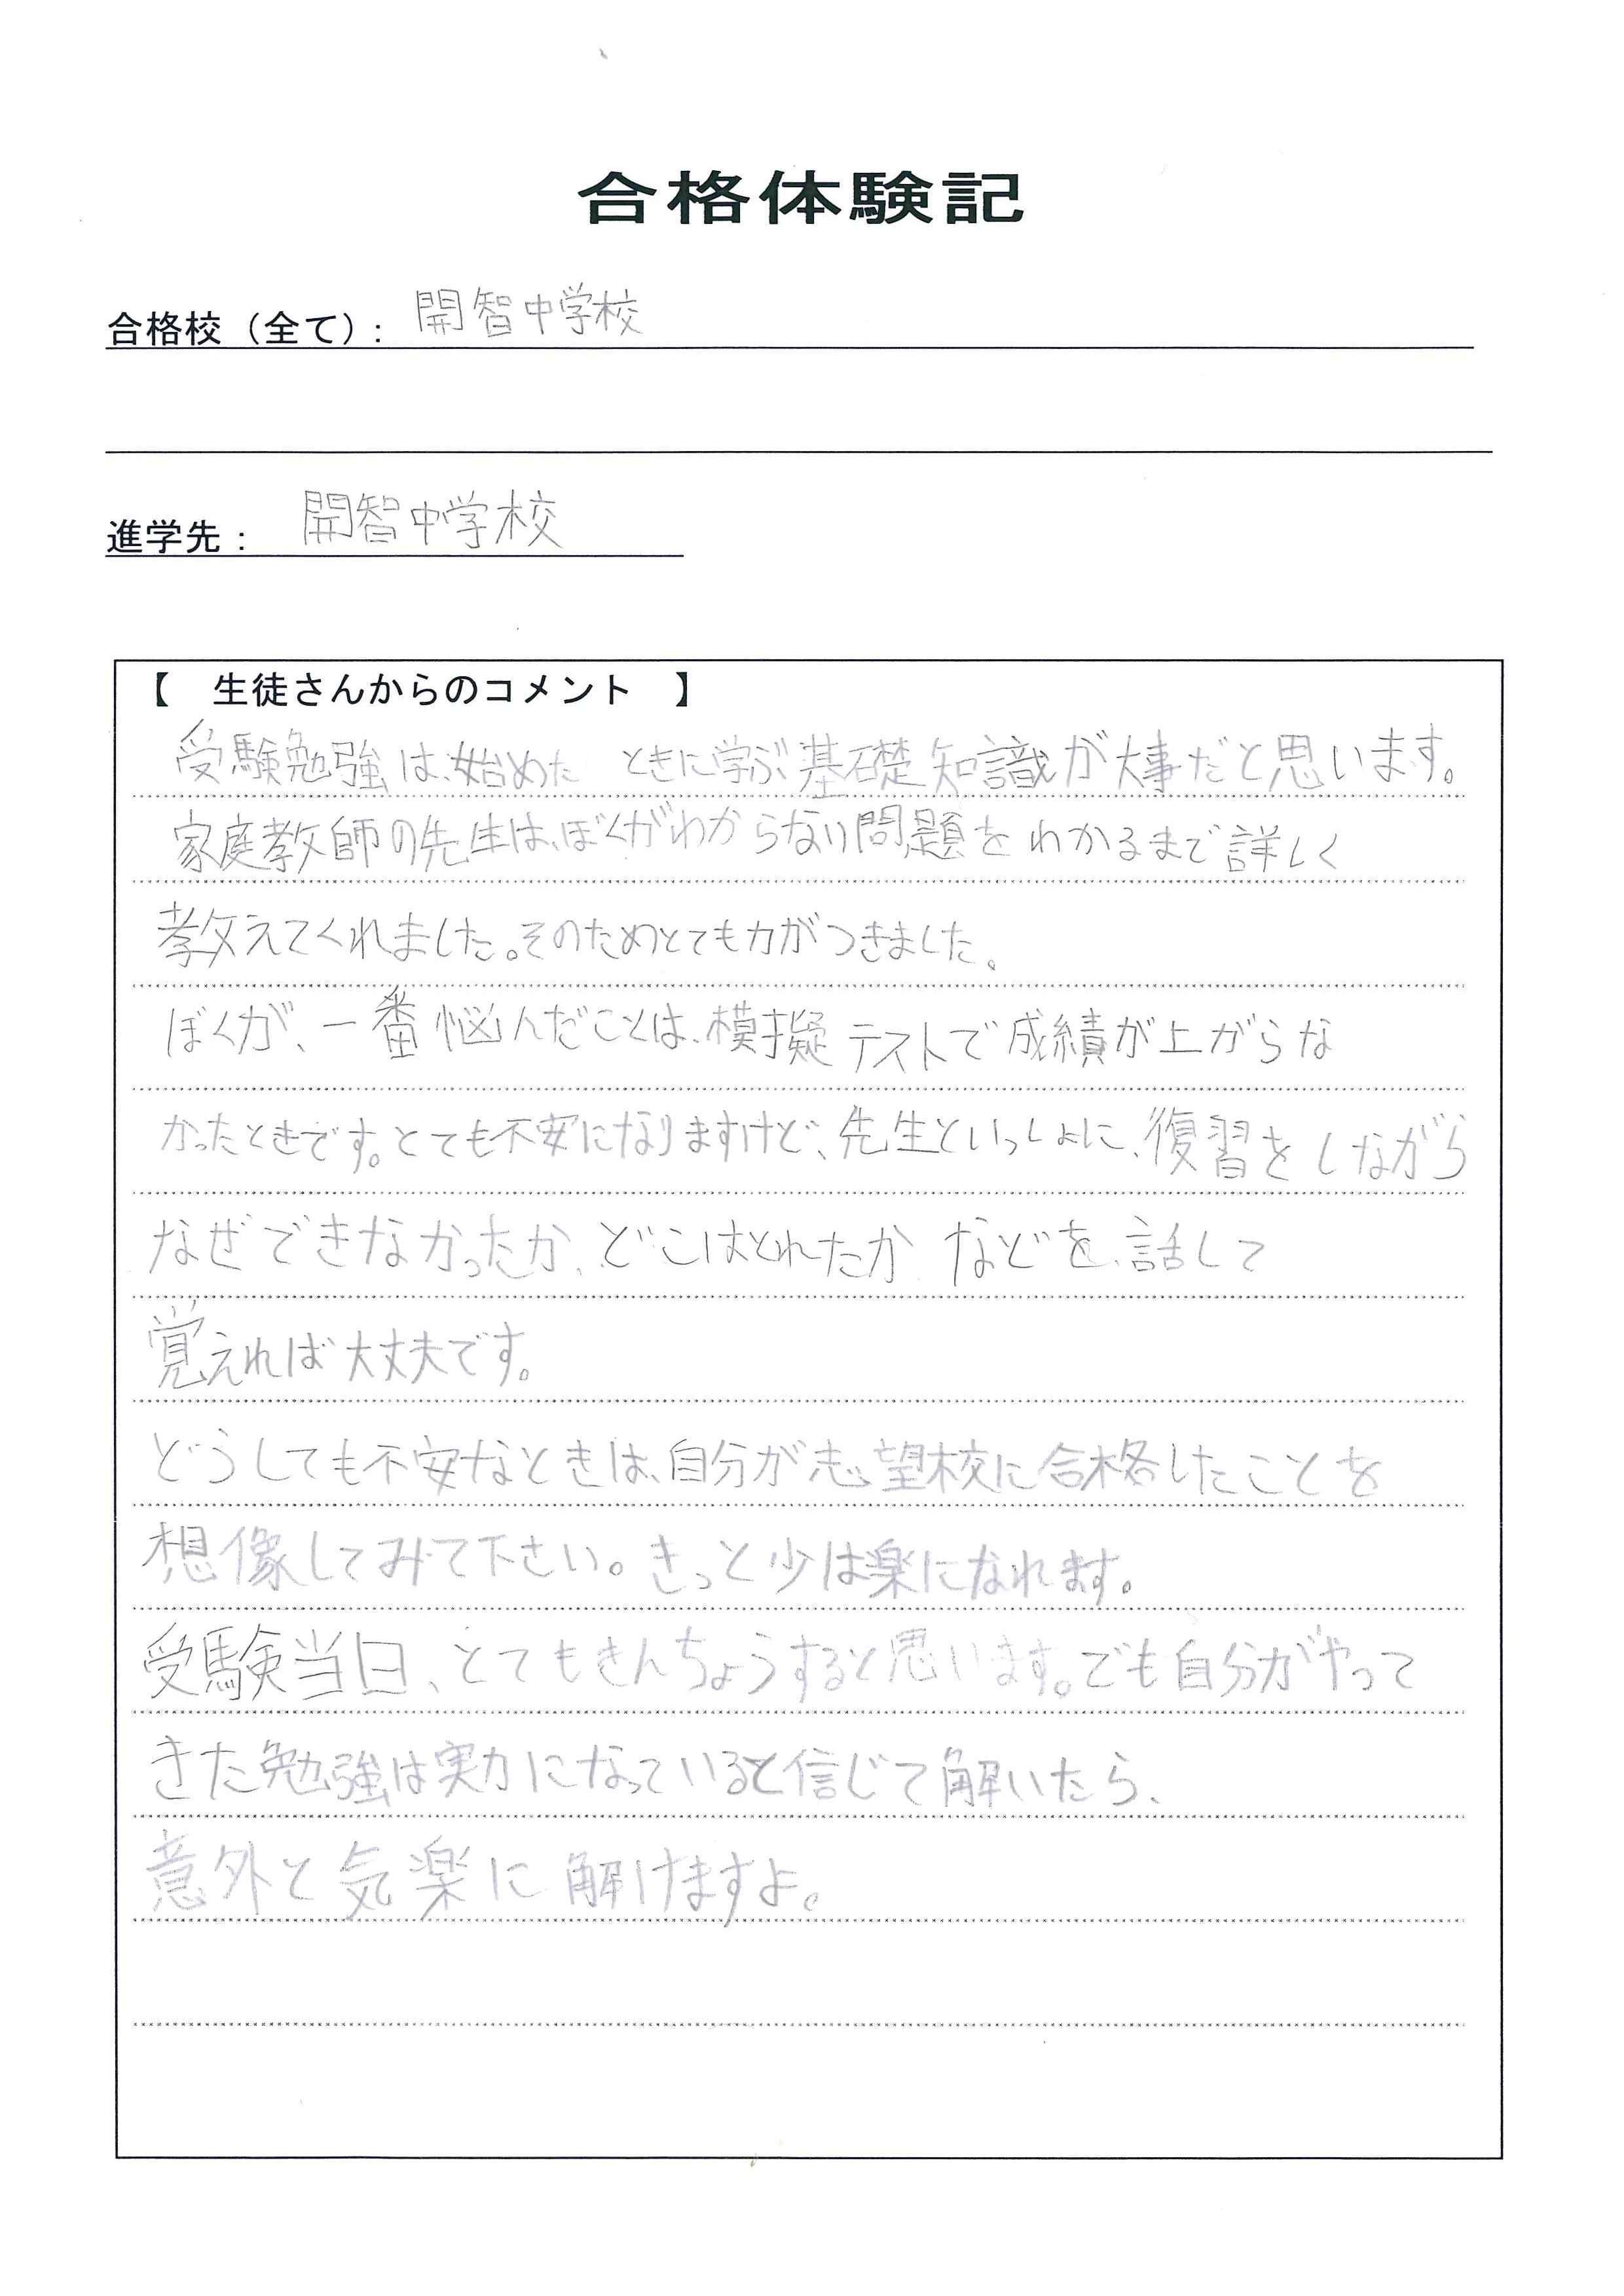 合格体験記
合格校（全て）： 開智中学校
進学先： 開智中学校
【　生徒さんからのコメント　】
受験勉強は、始めた ときに学ぶ基礎知識が大事だと思います。
家庭教師の先生は、ぼくがわからない問題をわかるまで詳しく
教えてくれました。そのためとても力がつきました。
ぼくが、一番悩んだことは、模擬テストで成績が上がらな
かったときです。とても不安になりますけど、先生といっしょに、復習をしながら
なぜできなかったか、どこはとれたか などを、話して
覚えれば大丈夫です。
どうしても不安なときは、自分が志望校に合格したことを
想像してみて下さい。きっと少は楽になれます。
受験当日、とてもきんちょうすると思います。でも自分がやって
きた勉強は実力になっていると信じて解いたら、
意外と気楽に解けますよ。